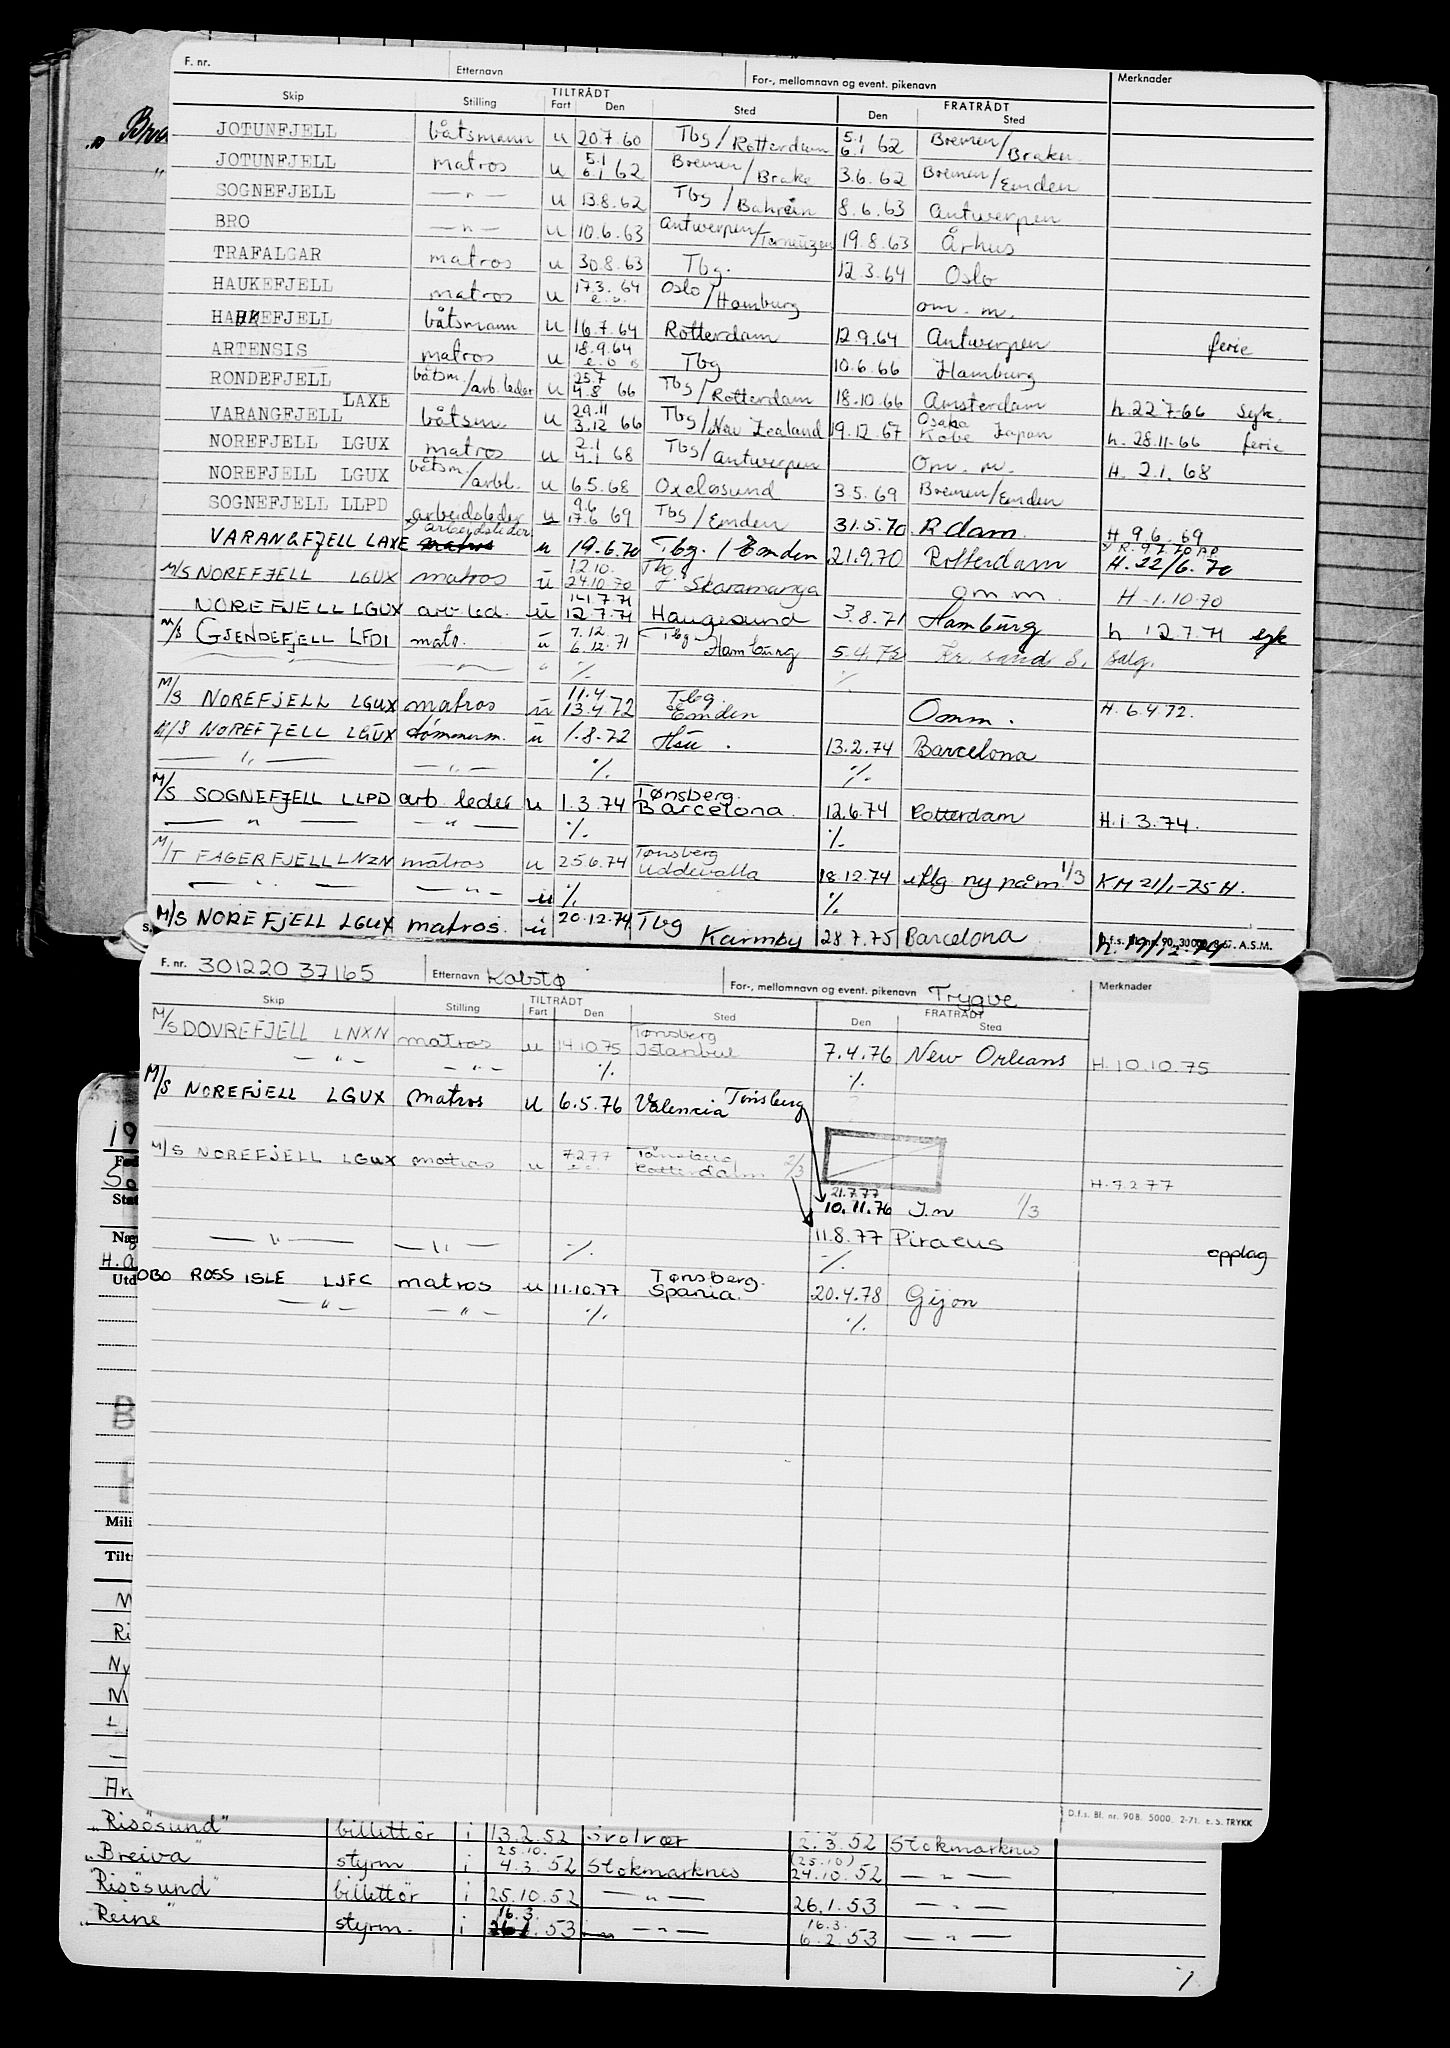 F. nr. Etternavn For-, mellomnavn og event. pikenavn Merknader
TILTRÅDT FRATRÅDT
Skip Stilling Fart Den Sted Den Sted
„ Bra
JOTUNFJELL båtsmann u 20.7.60 Tbg/Rotterdam 5.1 6.1 62 Bremen/Braken
JOTUNFJELL matros u 5.1 6.1 62 Bremen/Brake 3.6.62 Bremen/Emden
SOGNEFJELL — " — u 13.8.62 Tbg/Bahrein 8.6.63 Antwerpen
BRO — " — u 10.6.63 Antwerpen/Terneuzen 19.8.63 Århus
TRAFALGAR matros u 30.8.63 Tbg. 12.3.64 Oslo
HAUKEFJELL matros u 17.3.64 Oslo/Hamburg om. m.
HAUKEFJELL båtsmann u 16.7.64 Rotterdam 12.9.64 Antwerpen ferie
ARTENSIS matros u 18.9.64 Tbg 10.6.66 Hamburg
RONDEFJELL båtsm./arb.leder u 25.7 4.8 66 Tbg/Rotterdam 18.10.66 Amsterdam h. 22.7.66 syk.
VARANGFJELL LAXE båtsm. u 29.11 3.12 66 Tbg/New Zealand 19.12.67 Osaka Kobe Japan h. 28.11.66 ferie
NOREFJELL LGUX matros u 2.1 4.1 68 Tbg/Antwerpen Om. m. H. 2.1.68
NOREFJELL LGUX båtsm./arbl. u 6.5.68 Oxeløsund 3.5.69 Bremen/Emden
SOGNEFJELL LLPD arbeidsleder u 9.6 17.6 69 Tbg/Emden 31.5.70 R.dam. H 9.6.69
VARANGFJELL LAXE matros arbeidsleder u 19.6.70 Tbg. / Emden 21.9.70 Rotterdam H. 22/6.70
M/S NOREFJELL LGUX matros u 12.10. 24.10.70 Tbg Skaramanga om m. H 1.10.70
NOREFJELL LGUX arb led. u 14.7.71 12.7.71 Haugesund 3.8.71 Hamburg h 12.7.71 syk
M/S GJENDEFJELL LFDI matr. u 7.12 6.12.71 Tbg Hamburg 5.4.72 Kr. sand S. Salg.
— " — — " — " %. %.
M/S NOREFJELL LGUX matros u 11.4 13.4.72 Tbg. Emden Omm. H. 6.4.72.
M/S NOREFJELL LGUX tømmerm. u 1.8.72 13.2.74 Barcelona
— " — — " — %. %.
M/S SOGNEFJELL LLPD arb. leder u 1.3.74 Tønsberg. Barcelona. 12.6.74 Rotterdam H.1.3.74.
— " — — " — %. %.
M/T FAGERFJELL LNZN matros u 25.6.74 Tønsberg Uddevalla 18.12.74 ny påm 1/3 KM 21/1-75 H.
— " — — " — u %. %.
M/S NOREFJELL LGUX matros. u 20.12.74 Tbg Karmøy 28.7.75 Barcelona h. 17/12.74
D.f.s. Bl. nr. 90. 30000. 8-67. A.S.M.
F. nr. 301220 37165 Etternavn Kobstø For-, mellomnavn og event. pikenavn Trygve Merknader
TILTRÅDT FRATRÅDT
Skip Stilling Fart Den Sted Den Sted
M/S DOVREFJELL LNXN matros u 14.10.75 Tønsberg Istanbul 7.4.76 New Orleans H. 10.10.75
— " — — " — %. %.
M/S NOREFJELL LGUX matros u 6.5.76 Valencia Tønsberg
M/S NOREFJELL LGUX matros u 7.2.77 Tønsberg Rotterdam 2/3 H. 7.2.77
21.7.77
10.11.76 I.m 1/3
11.8.77 Piraeus opplag
— " — — " — %. %.
OBO ROSS ISLE LJFC matros u 11.10.77 Tønsberg. Spania. 20.4.78 Gijon
— " — — " — %. %.
D.f.s. Bl. nr. 90B. 5000. 2-71. E. S. TRYKK
19
Fød
So
Stat
Næ
H.a
Utd
B
Mili
Tilt
M
Ri
Ny
M
L
—
An
„Risösund" billettör i 13.2.52 Svolvær 2.3.52 Stokmarknes
„Breiva" styrm i 25.10. 4.3.52 Stokmarknes (25.10) 24.10.52 — " —
Risösund" billettör i 25.10.52 — " — 26.1.53 — " —
„Reine" styrm. i 16.3. 26.1.53 — " — 16.3. 6.2.53 — " —
%